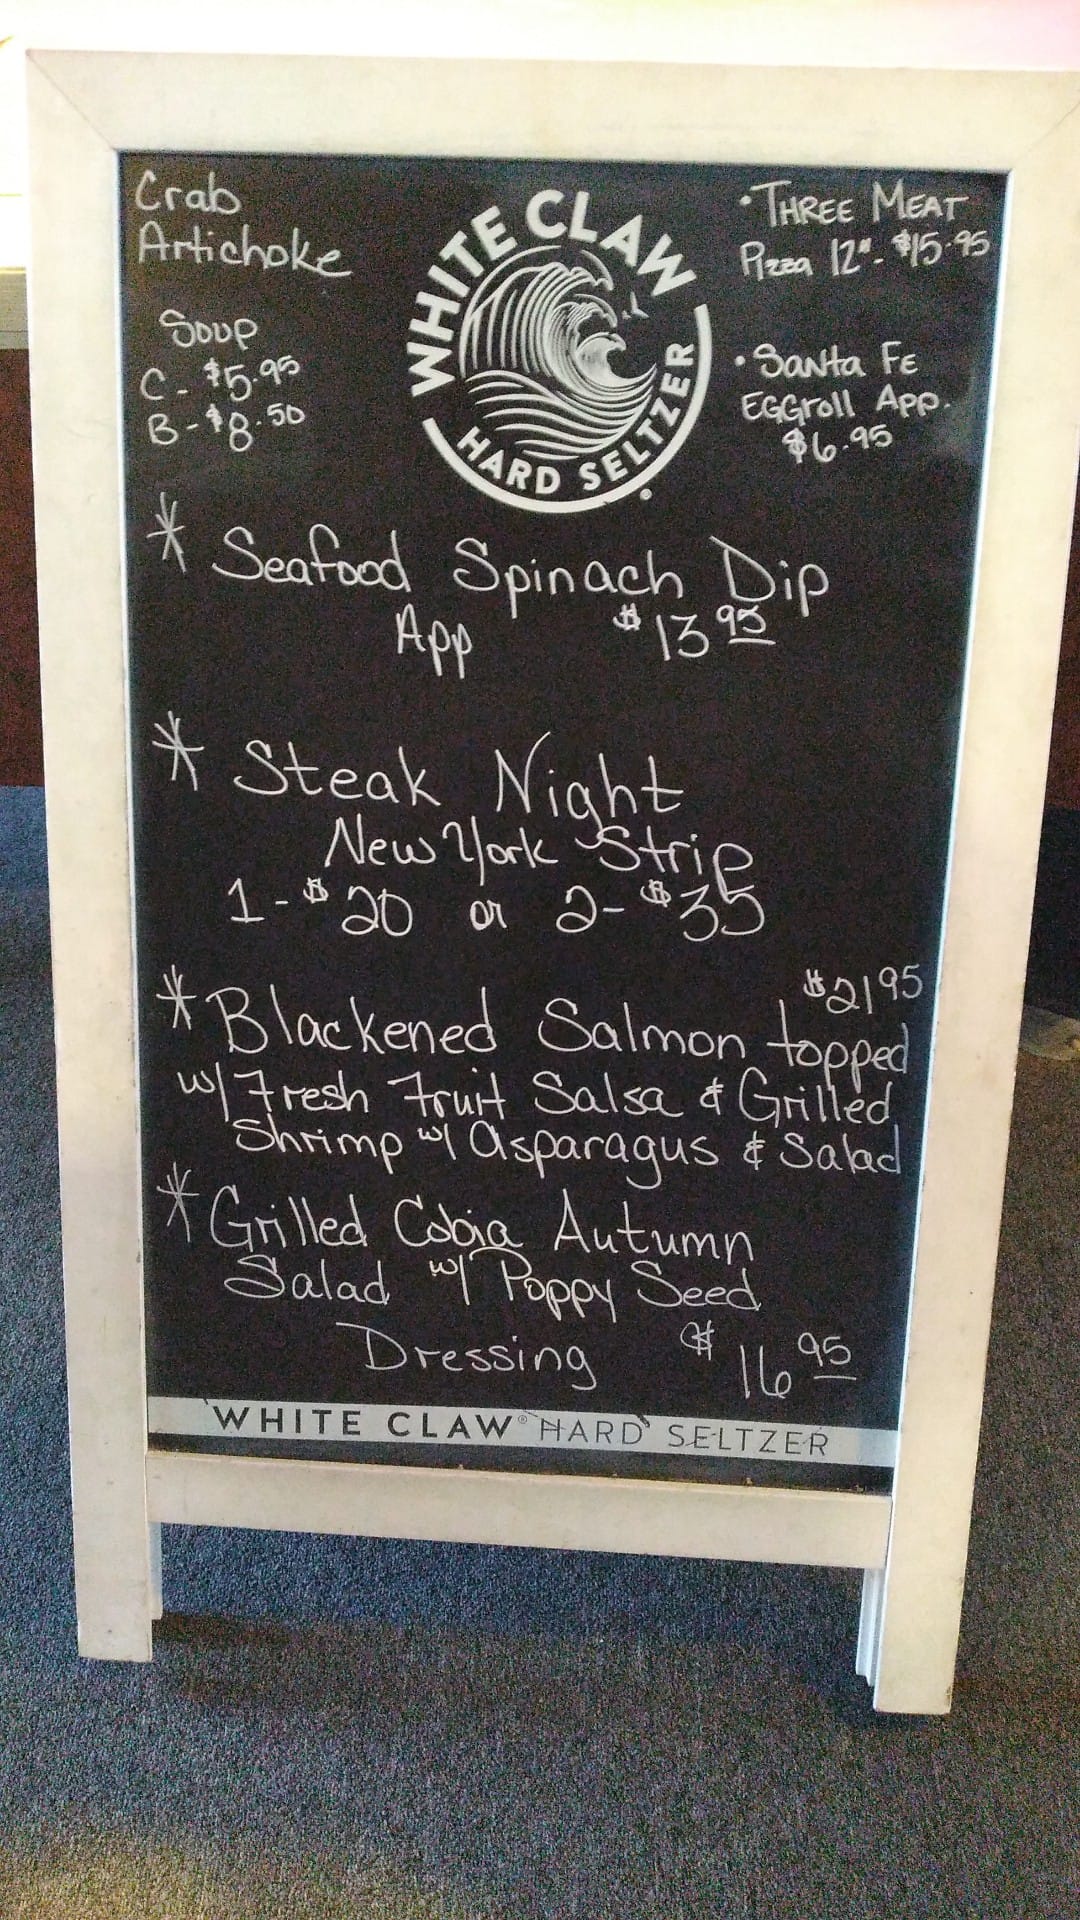 Crab
Artichoke
Soup
C - $5.95
B - $8.50
WHITE CLAW
HARD SELTZER
• THREE MEAT
Pizza 12" - $15.95
• Santa Fe
Eggroll App.
$6.95
* Seafood Spinach Dip
App $13 95
* Steak Night
New York Strip
1 - $20 or 2 - $35
$21 95
* Blackened Salmon topped
w/ Fresh Fruit Salsa & Grilled
Shrimp w/ Asparagus & Salad
* Grilled Cobia Autumn
Salad w/ Poppy Seed
Dressing $16 95
WHITE CLAW® HARD SELTZER